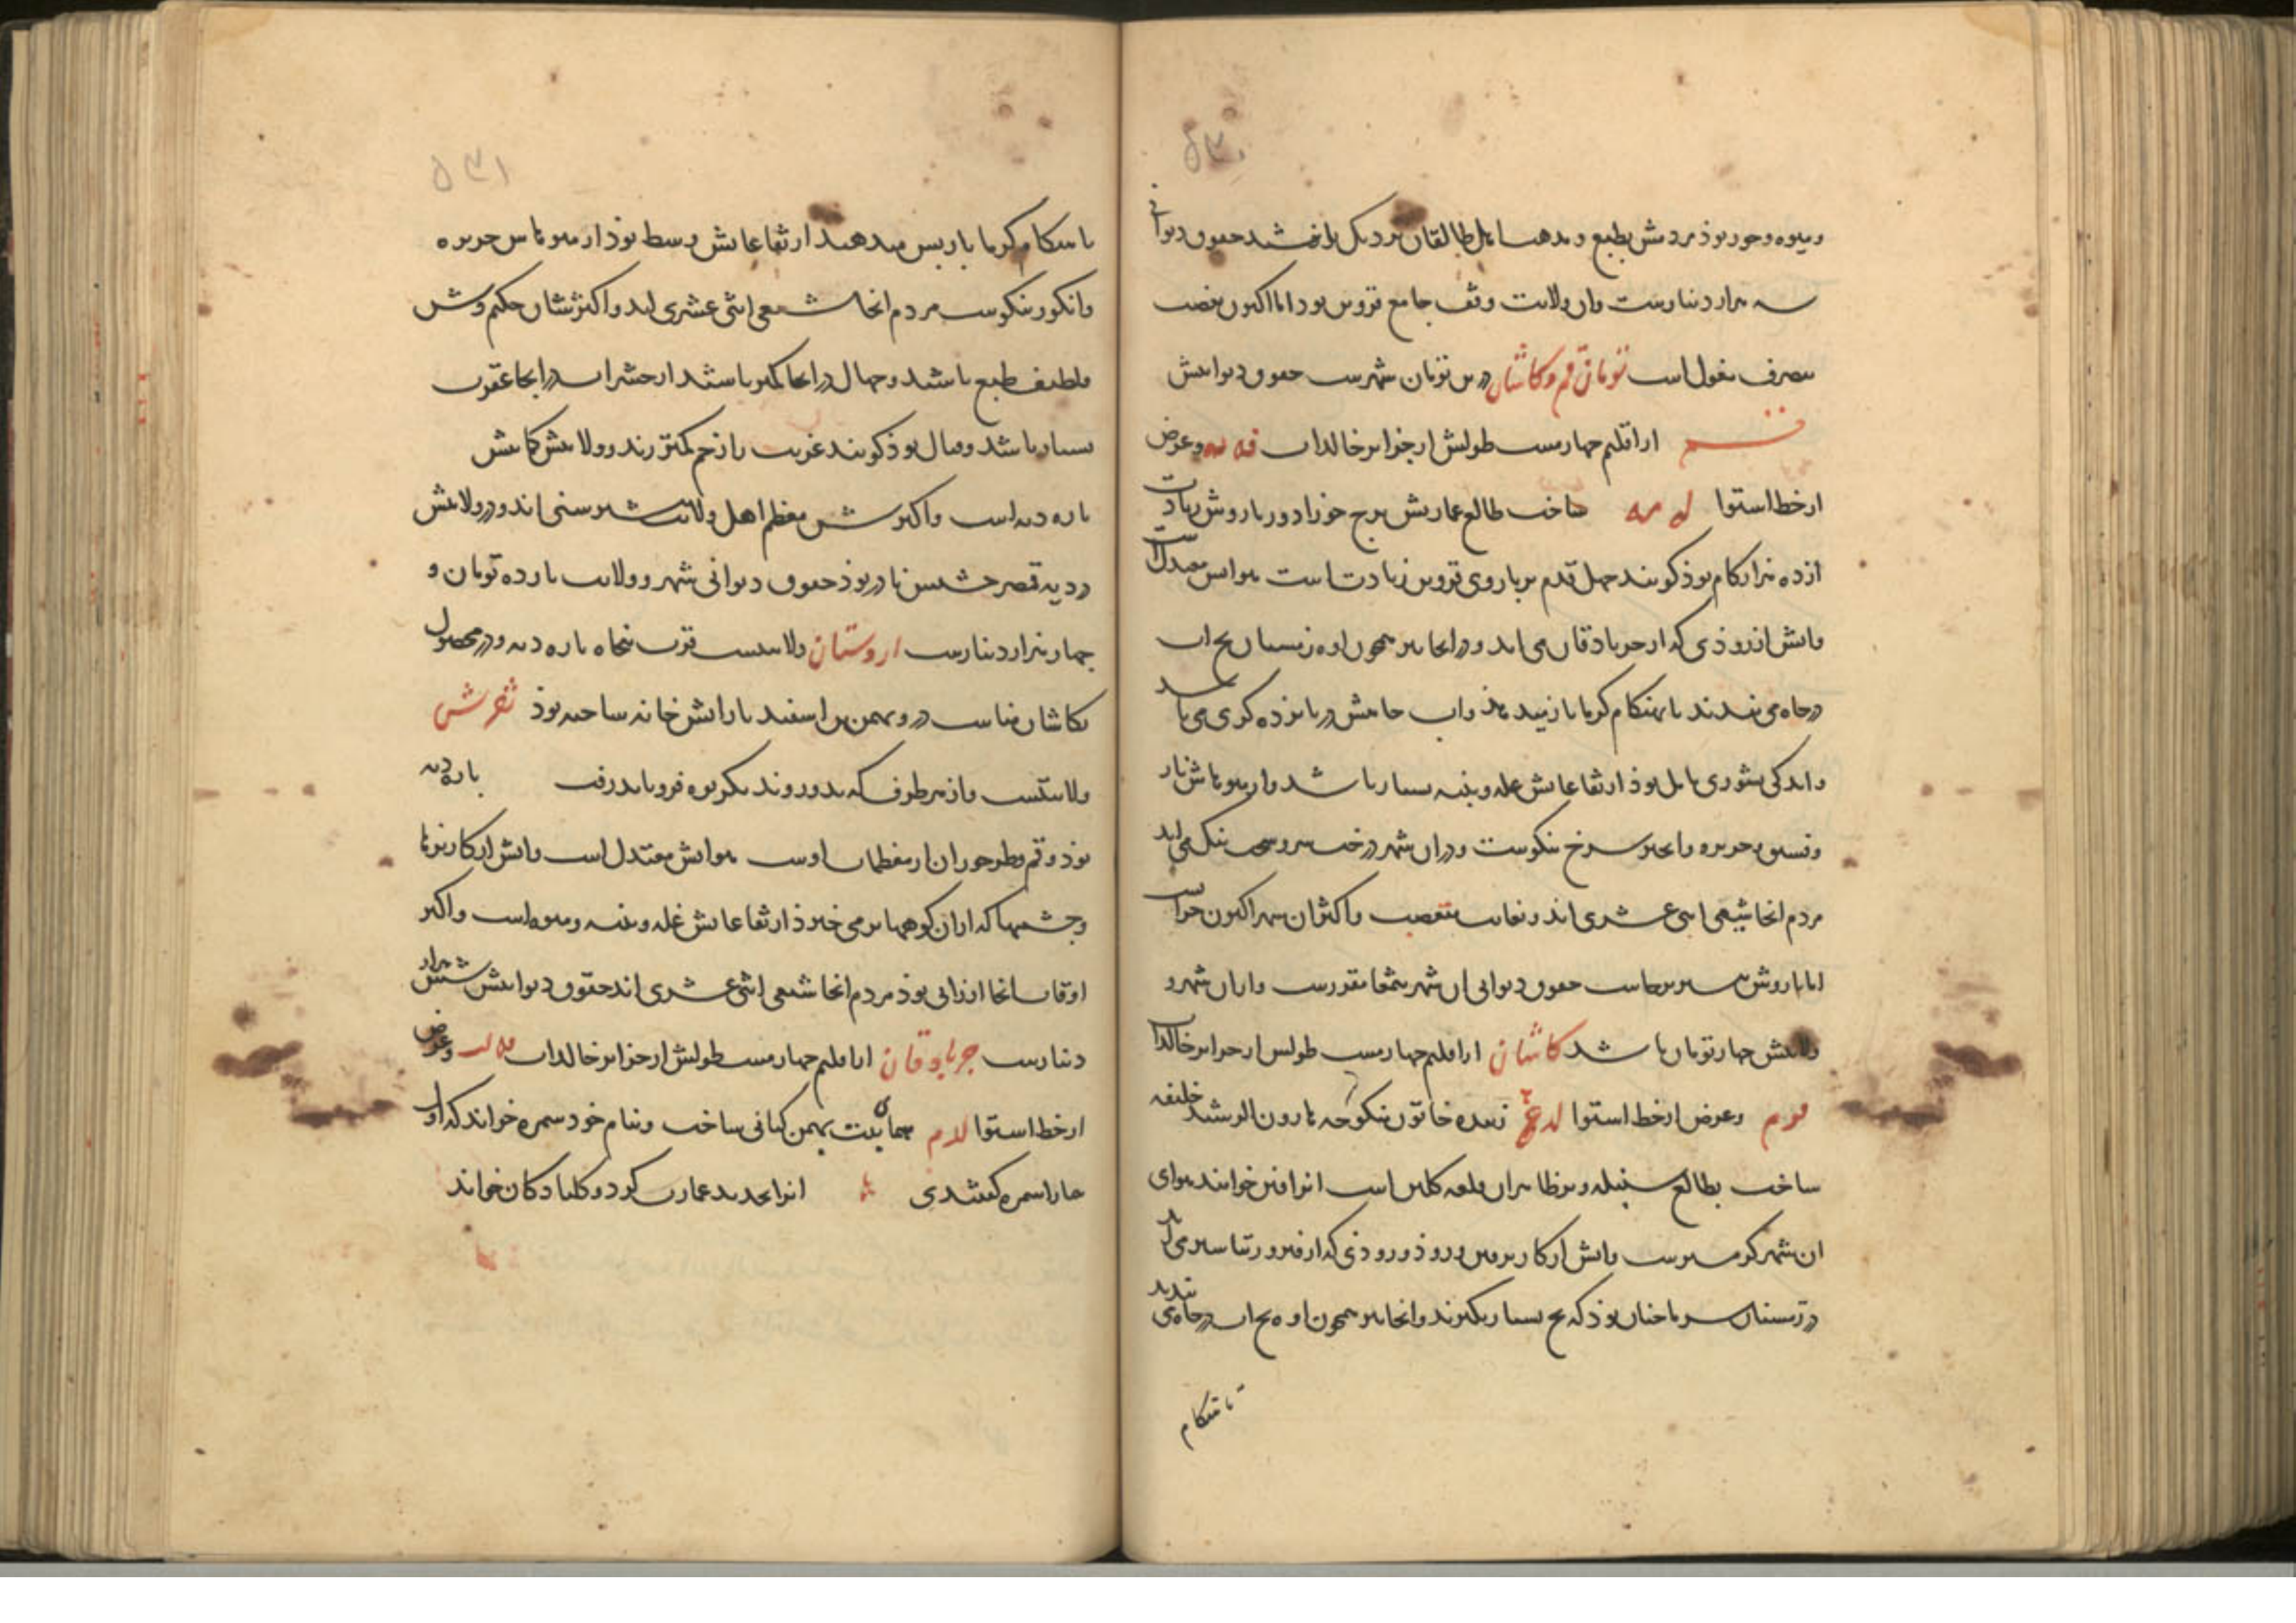 ۵۳۰
و میوه و خور بوذ مردمش بطبع و مذهب باهل طالقان نزدیک باشند حقوق دیوانی
سه هزار دینارست و آن ولایت وقف جامع قزوین بود اما اکنون بغصب
بتصرف مغول است تومان قم و کاشان درین تومان شهرست حقوق دیوانیش
قم از اقلیم چهارمست طولش از جزایر خالدات فه یه و عرض
از خط استوا لد مه ساخت طالع عمارتش برج جوزا دور باروش زیادت
از ده هزار کام بوذ کویند چهل قدم بر باروی قزوین زیادتست هوایش معتدلست
و آبش از روذی که از جربادقان می آید و در آنجا نیز همچون آوه زمستان یخ آب
در چاه می بندند تا بهنکام کرما باز میدهد و آب چاهش در پانزده کزی می باشد
و اندکی بشوری مایل بوذ ارتفاعاتش غله و پنبه بسیار باشد و از میوهاش نار
و فستق و خربزه و انجیر سرخ نیکوست و در آن شهر درخت سرو سخت نیک می آید
مردم آنجا شیعی اثنی عشری اند و بغایت متعصب و اکثر آن شهر اکنون خرابست
اما باروش بیشتر برجاست حقوق دیوانی آن شهر بتمغا مقررست و از آن شهر و
ولایتش چهار تومان باشد کاشان از اقلیم چهارمست طولش از جزایر خالدات
فوم و عرض از خط استوا لد زبیده خاتون منکوحه هارون الرشید خلیفه
ساخت بطالع سنبله و بر ظاهر آن قلعه کلین است آنرا فین خوانند هوای
آن شهر کرمسیرست و آبش از کاریز فین و روذ و روذی که از قهرود و نیاسر می آید
در زمستان سرما چنان بوذ که یخ بسیار بکیرند و آنجا نیز همچون آوه یخ آب در چاه می بندند
تا هنکام
۵۳۱
تا هنکام کرما باز پس میدهند ارتفاعاتش وسط بوذ از میوهاش خربزه
و انکور نیکوست مردم آنجا شیعی اثنی عشری اند و اکثرشان حکیم وش
و لطیف طبع باشند و جهال در آنجا کمتر باشند از حشرات در آنجا عقرب
بسیار باشد و قتال بوذ کویند غریب را زخم کمتر زند و ولایتش کمابیش
پاره دیه است و اکثر معظم اهل ولایت بیشتر سنی اند و در ولایتش
در دیه قصر حقوق دیوانی شهر و ولایت یازده تومان و
چهار هزار دینارست اردستان ولایتیست قرب پنجاه پاره دیه و در محصول
بکاشان مناسب درو بهمن بن اسفندیار آتش خانه ساخته بوذ تفرش
ولایتیست و از هر طرف که بدو روند بکریوه فرو باید رفت پاره دیه
بوذ و فم و طرخوران از معظمات اوست هوایش معتدل است و آبش از کاریزها
و چشمها که از آن کوهها بر می خیزذ ارتفاعاتش غله و پنبه و میوه است و اکثر
اوقات آنجا ارزانی بوذ مردم آنجا شیعی اثنی عشری اند حقوق دیوانیش شش هزار
دینارست جربادقان از اقلیم چهارمست طولش از جزایر خالدات فه لب و عرض
از خط استوا لد م همای بنت بهمن کیانی ساخت و بنام خود سمره خواند که اول
همای را سمره کفتندی آنرا تجدید عمارت کرد و کلبادکان خواند